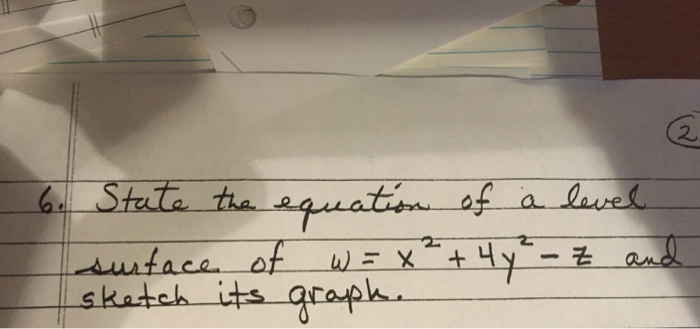 ②
6. State the equation of a level
surface of w = x² + 4y² - z and
sketch its graph.